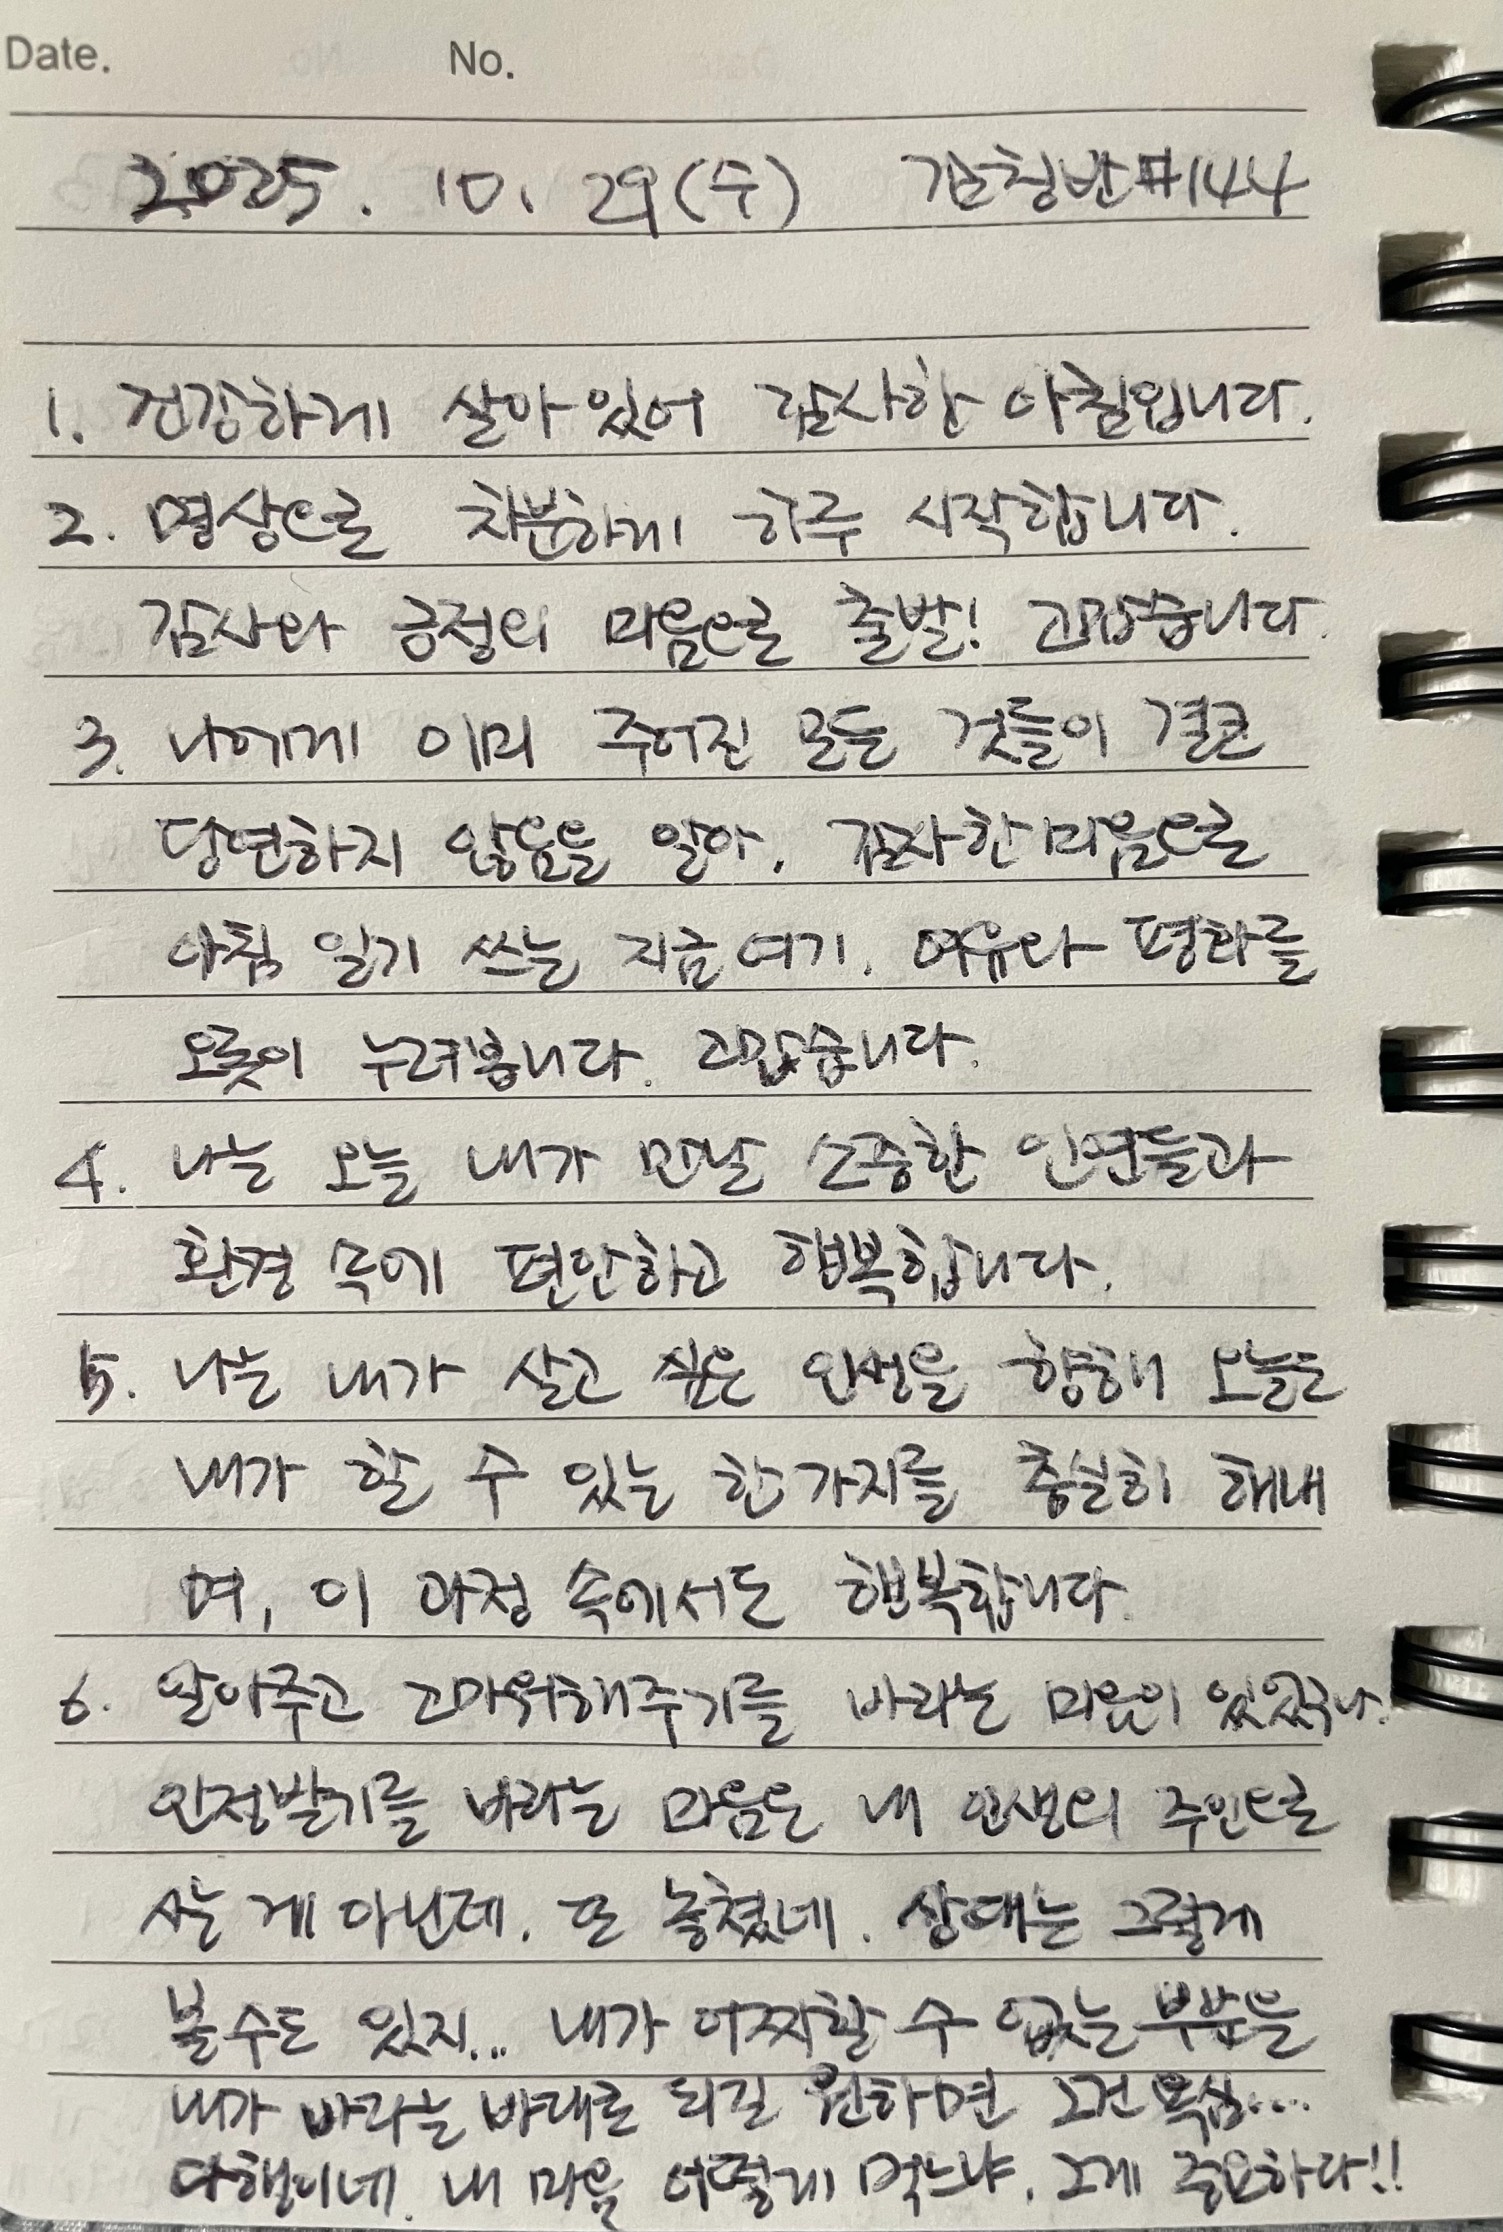 Date. No.
2025. 10. 29(수) 감칭반#144
1. 건강하게 살아 있어 감사한 아침입니다.
2. 명상으로 차분하게 하루 시작합니다.
감사와 긍정의 마음으로 출발! 고맙습니다.
3. 나에게 이미 주어진 모든 것들이 결코
당연하지 않음을 알아. 감사한 마음으로
아침 일기 쓰는 지금 여기. 여유와 평화를
오롯이 누려봅니다. 고맙습니다.
4. 나는 오늘 내가 만날 소중한 인연들과
환경 속에 편안하고 행복합니다.
5. 나는 내가 살고 싶은 인생을 향해 오늘도
내가 할 수 있는 한 가지를 충실히 해내
며, 이 과정 속에서도 행복합니다.
6. 알아주고 고마워해주기를 바라는 마음이 있었구나.
인정받기를 바라는 마음은 내 인생의 주인으로
사는 게 아닌데. 또 놓쳤네. 상대는 그렇게
볼 수도 있지... 내가 어찌할 수 없는 부분을
내가 바라는 바대로 되길 원하면 그건 욕심...
다행이네. 내 마음 어떻게 먹느냐. 그게 중요하다!!